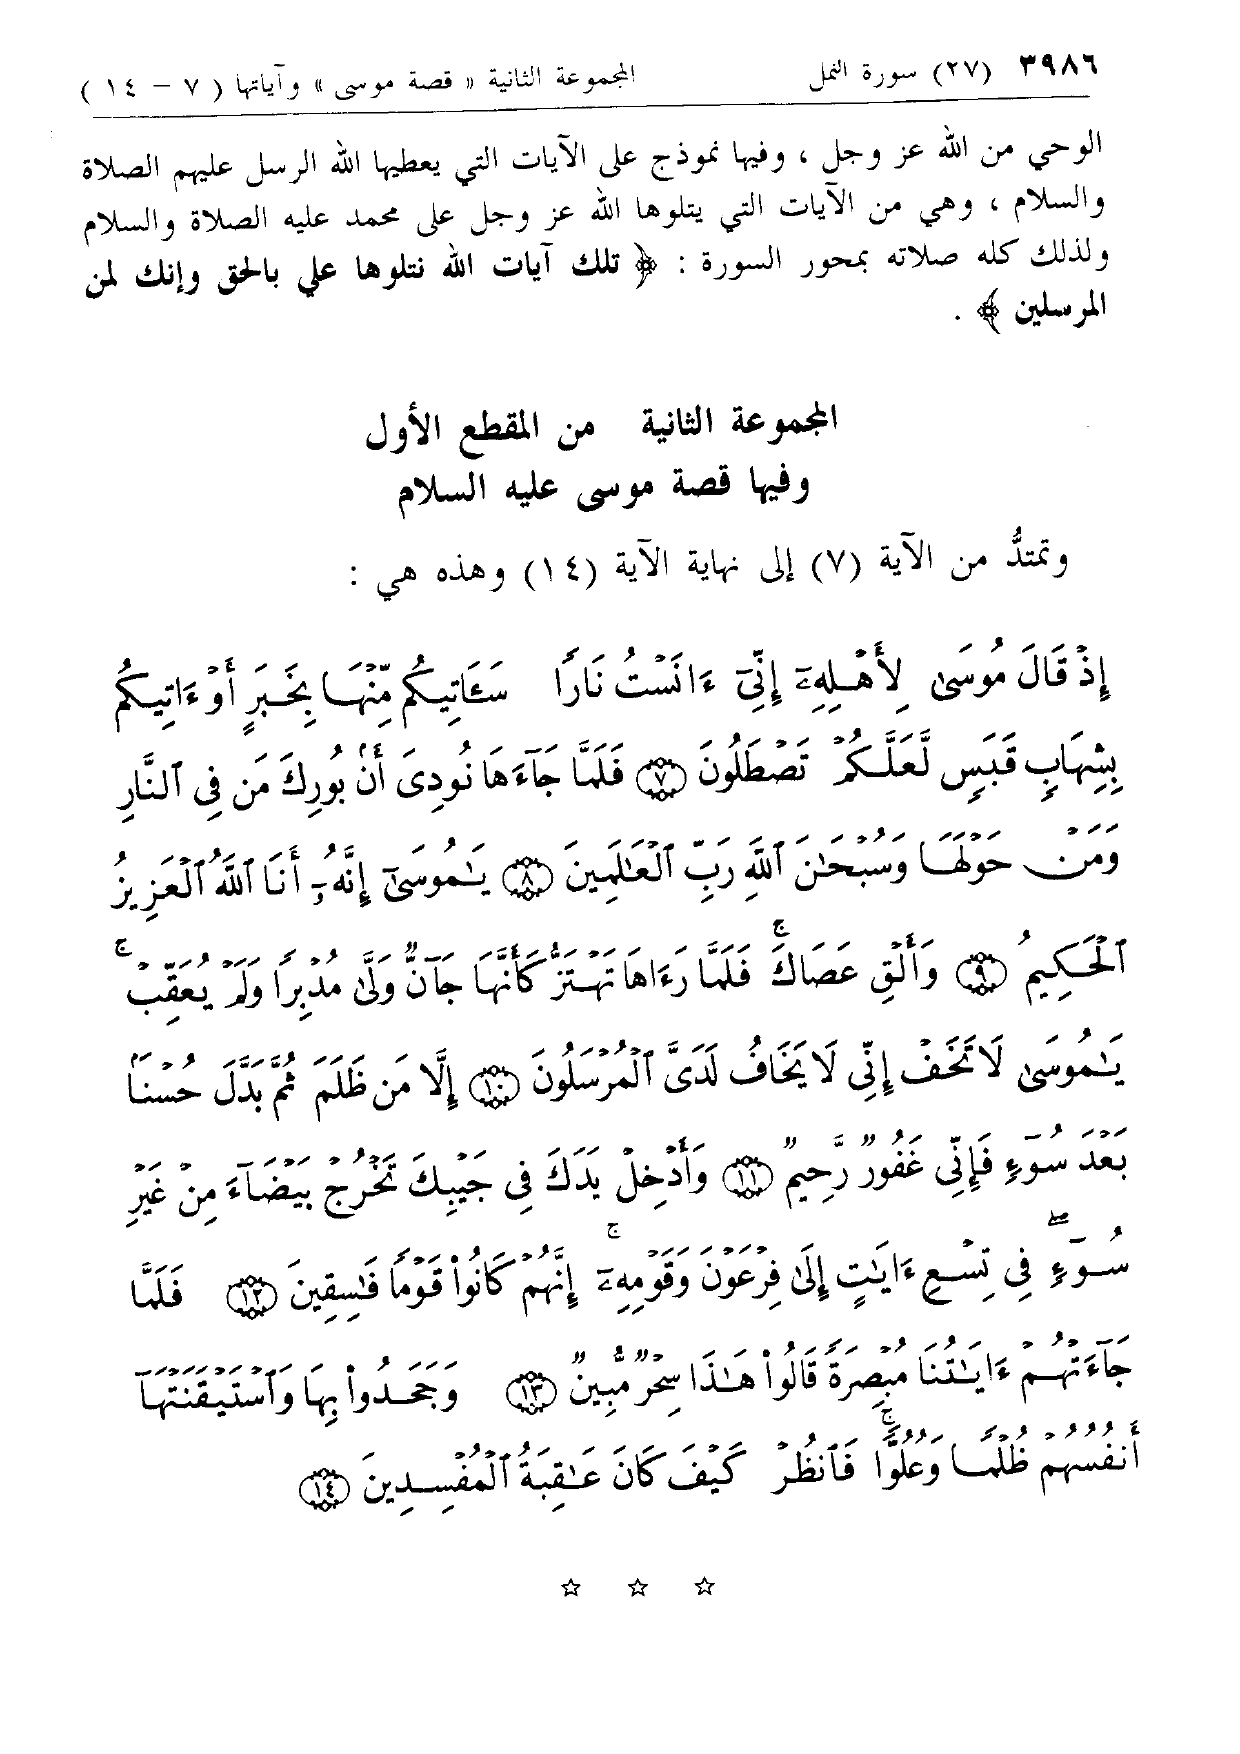 ٣٩٨٦ (٢٧) سورة النمل المجموعة الثانية « قصة موسى » وآياتها ( ٧ – ١٤ )
الوحي من الله عز وجل ، وفيها نموذج على الآيات التي يعطيها الله الرسل عليهم الصلاة
والسلام ، وهي من الآيات التي يتلوها الله عز وجل على محمد عليه الصلاة والسلام
ولذلك كله صلاته بمحور السورة : ﴿ تلك آيات الله نتلوها علي بالحق وإنك لمن
المرسلين ﴾ .
المجموعة الثانية من المقطع الأول
وفيها قصة موسى عليه السلام
وتمتدُّ من الآية (٧) إلى نهاية الآية (١٤) وهذه هي :
إِذْ قَالَ مُوسَىٰ لِأَهْلِهِۦٓ إِنِّىٓ ءَانَسْتُ نَارًا سَـَٔاتِيكُم مِّنْهَا بِخَبَرٍ أَوْ ءَاتِيكُم
بِشِهَابٍ قَبَسٍ لَّعَلَّكُمْ تَصْطَلُونَ ﴿٧﴾ فَلَمَّا جَآءَهَا نُودِىَ أَنۢ بُورِكَ مَن فِى ٱلنَّارِ
وَمَنْ حَوْلَهَا وَسُبْحَٰنَ ٱللَّهِ رَبِّ ٱلْعَٰلَمِينَ ﴿٨﴾ يَٰمُوسَىٰٓ إِنَّهُۥٓ أَنَا ٱللَّهُ ٱلْعَزِيزُ
ٱلْحَكِيمُ ﴿٩﴾ وَأَلْقِ عَصَاكَ ۚ فَلَمَّا رَءَاهَا تَهْتَزُّ كَأَنَّهَا جَآنٌّ وَلَّىٰ مُدْبِرًا وَلَمْ يُعَقِّبْ ۚ
يَٰمُوسَىٰ لَا تَخَفْ إِنِّى لَا يَخَافُ لَدَىَّ ٱلْمُرْسَلُونَ ﴿١٠﴾ إِلَّا مَن ظَلَمَ ثُمَّ بَدَّلَ حُسْنَۢا
بَعْدَ سُوٓءٍ فَإِنِّى غَفُورٌ رَّحِيمٌ ﴿١١﴾ وَأَدْخِلْ يَدَكَ فِى جَيْبِكَ تَخْرُجْ بَيْضَآءَ مِنْ غَيْرِ
سُوٓءٍ ۖ فِى تِسْعِ ءَايَٰتٍ إِلَىٰ فِرْعَوْنَ وَقَوْمِهِۦٓ ۚ إِنَّهُمْ كَانُوا۟ قَوْمًا فَٰسِقِينَ ﴿١٢﴾ فَلَمَّا
جَآءَتْهُمْ ءَايَٰتُنَا مُبْصِرَةً قَالُوا۟ هَٰذَا سِحْرٌ مُّبِينٌ ﴿١٣﴾ وَجَحَدُوا۟ بِهَا وَٱسْتَيْقَنَتْهَآ
أَنفُسُهُمْ ظُلْمًا وَعُلُوًّا ۚ فَٱنظُرْ كَيْفَ كَانَ عَٰقِبَةُ ٱلْمُفْسِدِينَ ﴿١٤﴾
☆ ☆ ☆